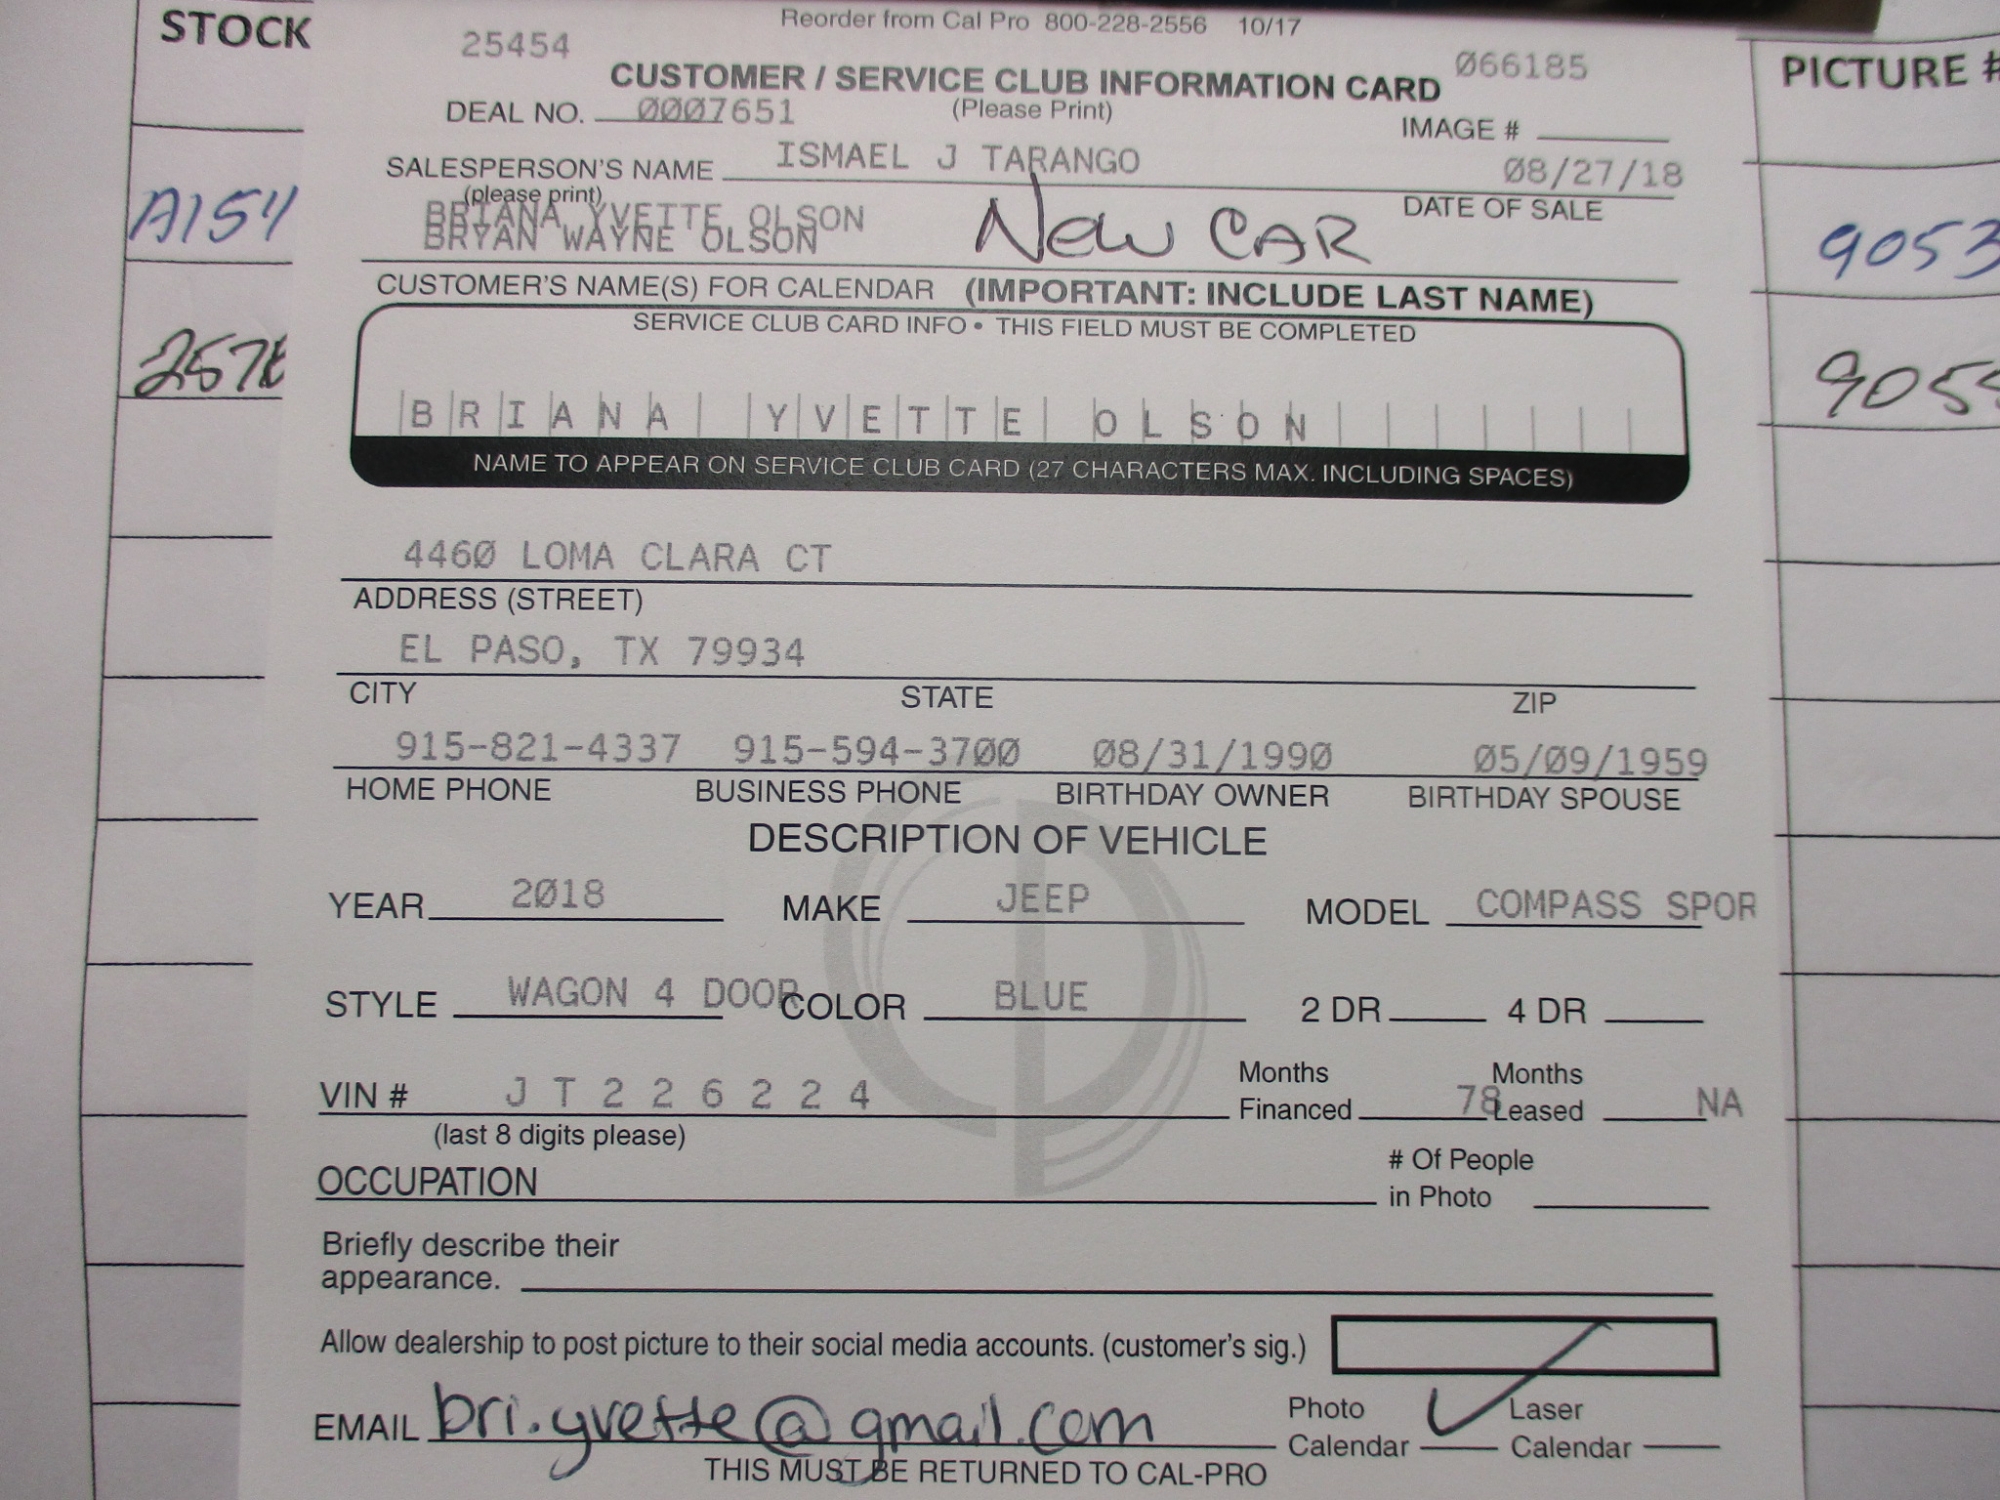 STOCK
Reorder from Cal Pro 800-228-2556 10/17
PICTURE #
25454
Ø66185
CUSTOMER / SERVICE CLUB INFORMATION CARD
DEAL NO. ØØØ7651 (Please Print)
IMAGE #
SALESPERSON'S NAME ISMAEL J TARANGO
Ø8/27/18
(please print)
DATE OF SALE
BRIANA YVETTE OLSON
BRYAN WAYNE OLSON
New CAR
A154
9053
CUSTOMER'S NAME(S) FOR CALENDAR (IMPORTANT: INCLUDE LAST NAME)
SERVICE CLUB CARD INFO • THIS FIELD MUST BE COMPLETED
905
BRIANA YVETTE OLSON
NAME TO APPEAR ON SERVICE CLUB CARD (27 CHARACTERS MAX. INCLUDING SPACES)
446Ø LOMA CLARA CT
ADDRESS (STREET)
EL PASO, TX 79934
CITY STATE ZIP
915-821-4337 915-594-37ØØ Ø8/31/199Ø Ø5/Ø9/1959
HOME PHONE BUSINESS PHONE BIRTHDAY OWNER BIRTHDAY SPOUSE
DESCRIPTION OF VEHICLE
YEAR 2Ø18 MAKE JEEP MODEL COMPASS SPOR
STYLE WAGON 4 DOOR COLOR BLUE 2 DR 4 DR
VIN # J T 2 2 6 2 2 4 Months Financed 78 Months Leased NA
(last 8 digits please)
OCCUPATION # Of People in Photo
Briefly describe their
appearance.
Allow dealership to post picture to their social media accounts. (customer's sig.)
EMAIL bri.yvette@gmail.com Photo Calendar Laser Calendar
THIS MUST BE RETURNED TO CAL-PRO